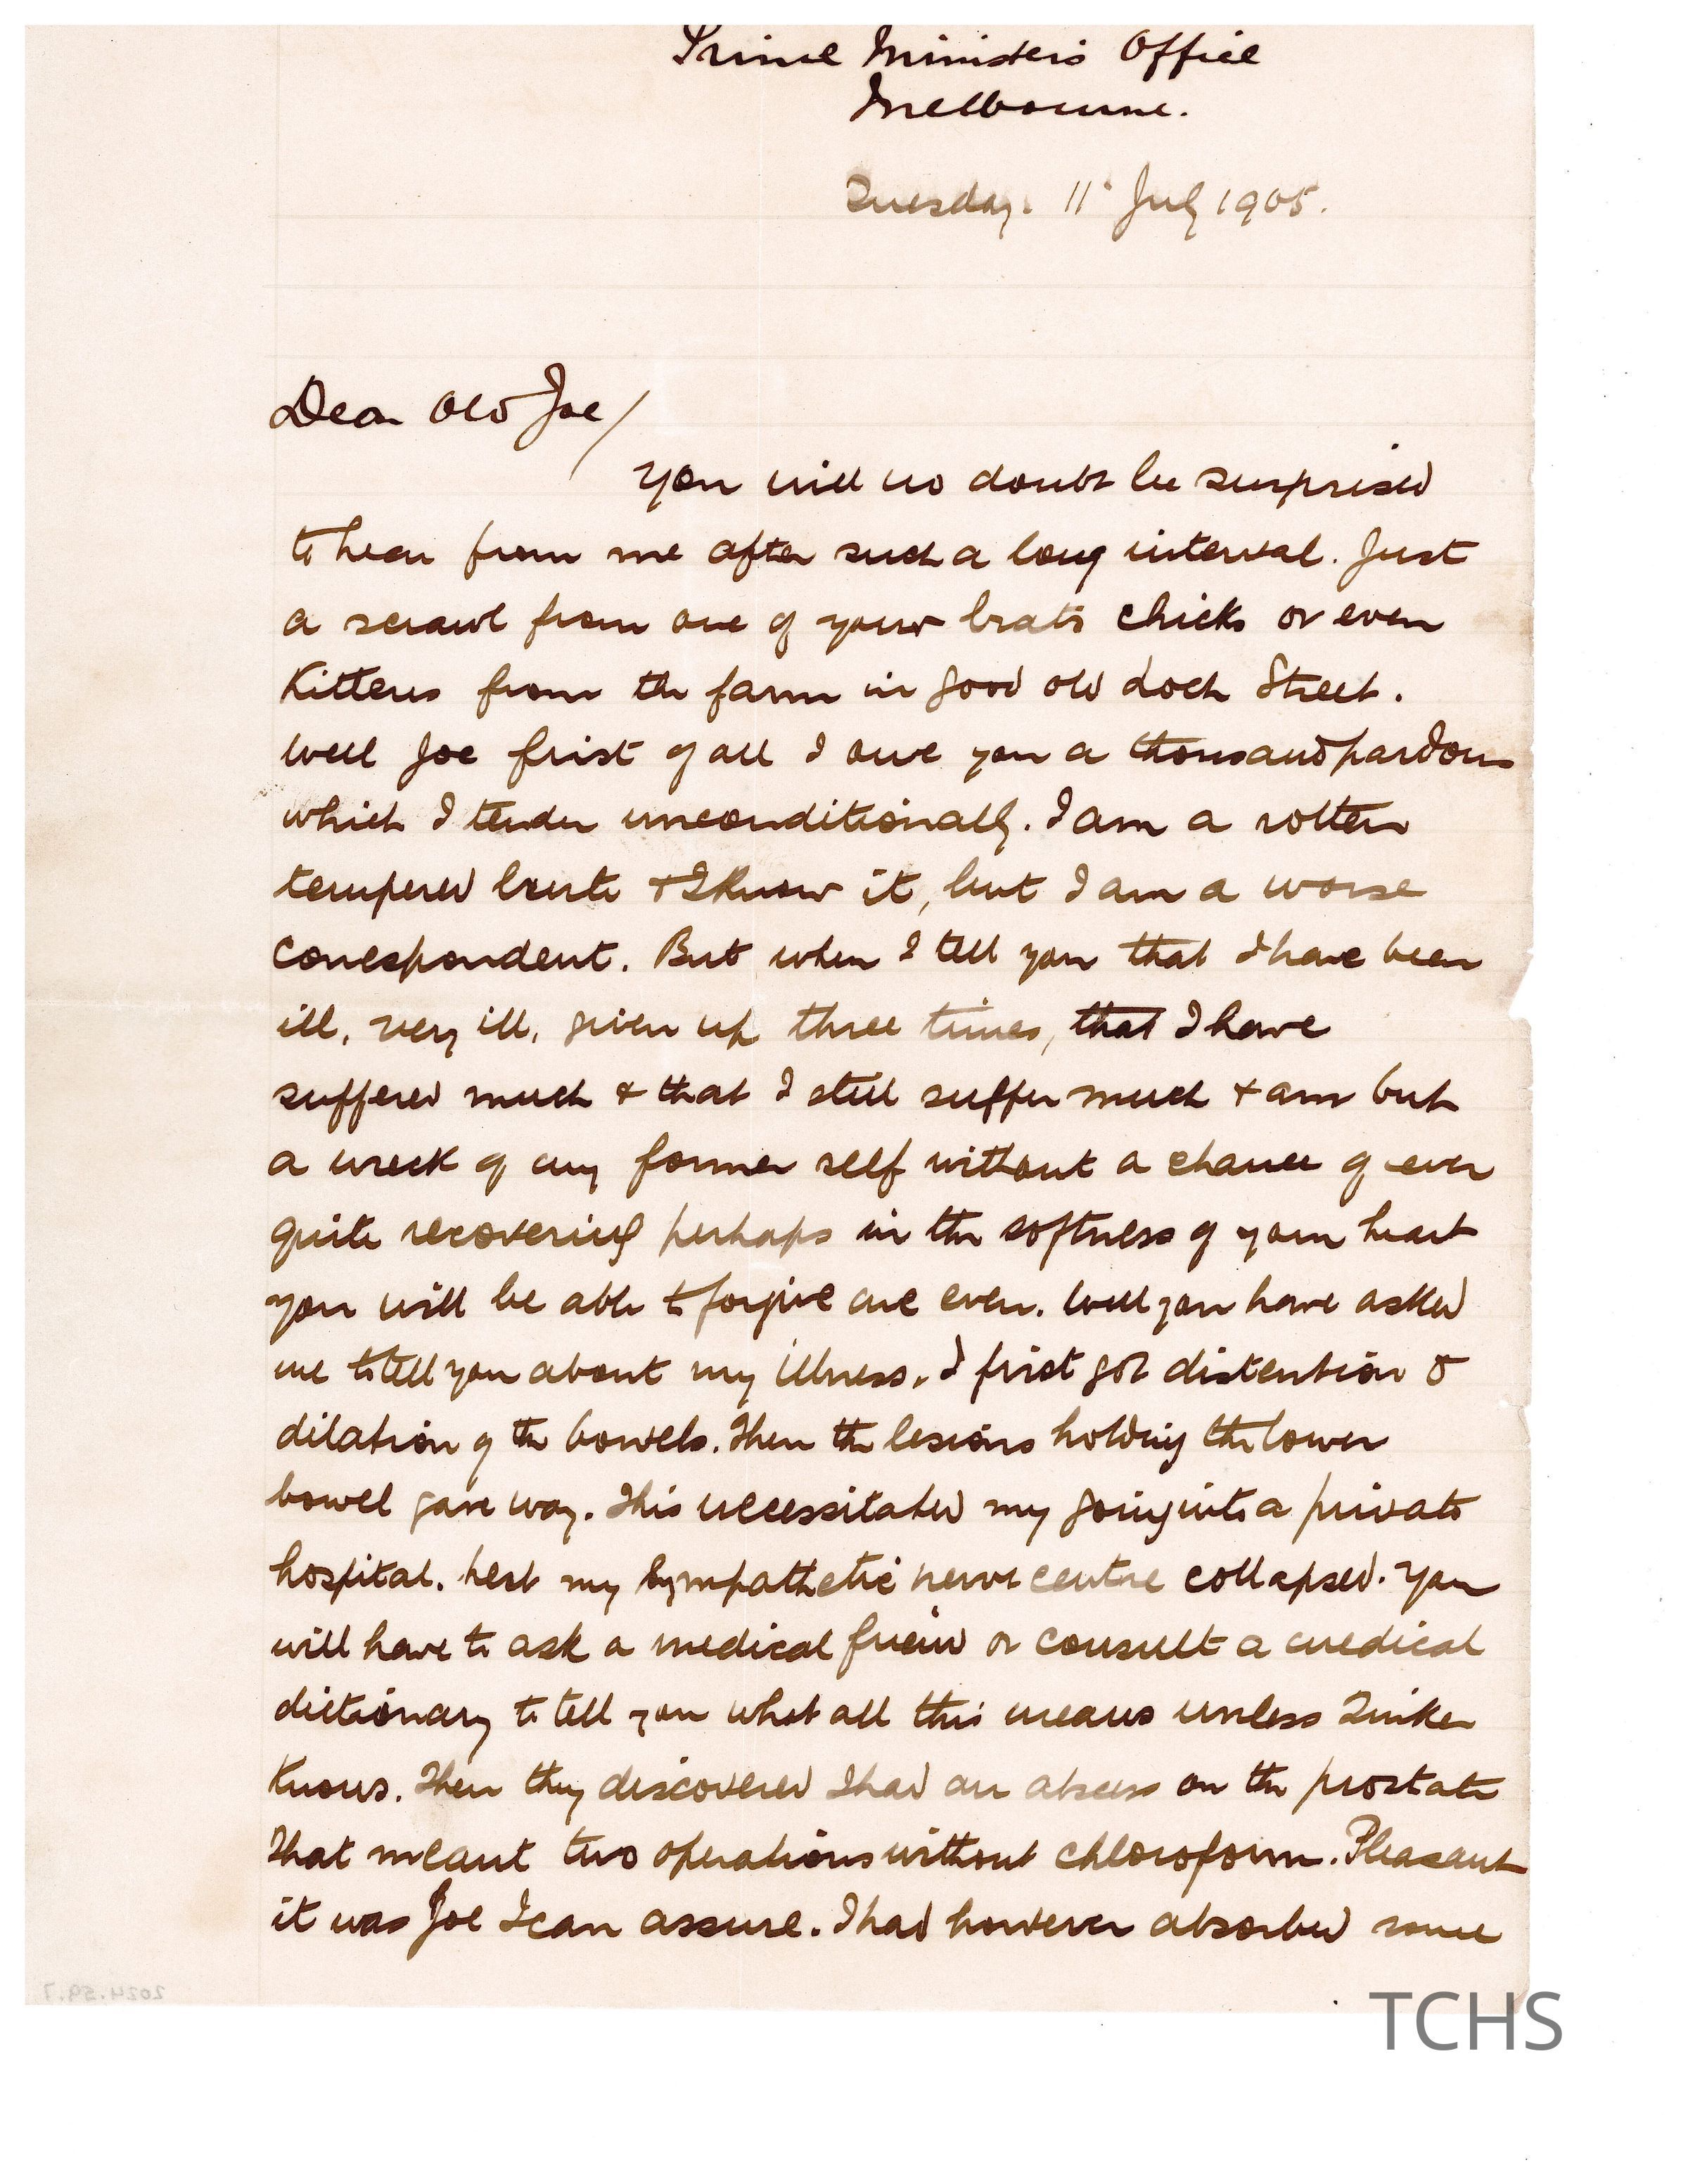 Prime Ministers Office
Melbourne.
Tuesday. 11 July 1905.
Dear Old Joe/
You will no doubt be surprised
to hear from me after such a long interval. Just
a scrawl from one of your brats chicks or even
Kittens from the farm in good old Loch Street.
Well Joe first of all I owe you a thousand pardons
which I tender unconditionally. I am a rotten
tempered brute + I know it, but I am a worse
correspondent. But when I tell you that I have been
ill, very ill, given up three times, that I have
suffered much + that I still suffer much + am but
a wreck of my former self without a chance of ever
quite recovering perhaps in the softness of your heart
you will be able to forgive me even. Well you have asked
me to tell you about my illness. I first got distention &
dilation of the bowels. Then the lesions holding the lower
bowel gave way. This necessitated my going into a private
hospital. Next my sympathetic nerve centre collapsed. You
will have to ask a medical friend or consult a medical
dictionary to tell you what all this means unless Tinker
Knows. Then they discovered I had an abscess on the prostate
That meant two operations without chloroform. Pleasant
it was Joe I can assure. I had however absorbed some
2024.59.7
TCHS